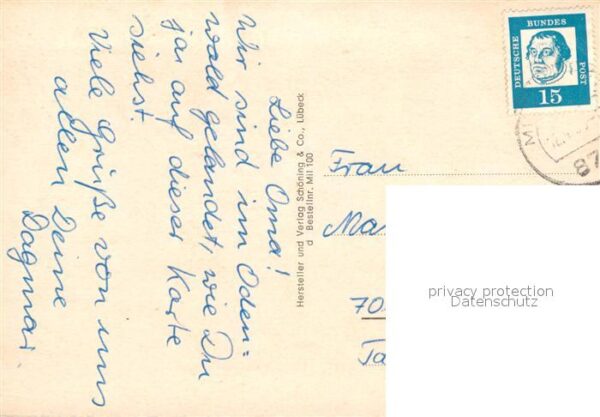 Liebe Oma!
Wir sind im Oden=
wald gelandet, wie Du
ja auf dieser Karte
siehst.
Viele Grüße von uns
allen Deine
Dagmar
Hersteller und Verlag Schöning & Co., Lübeck
Bestellnr. Mil 100
DEUTSCHE BUNDES POST
15
Frau
Ma
70
privacy protection
Datenschutz